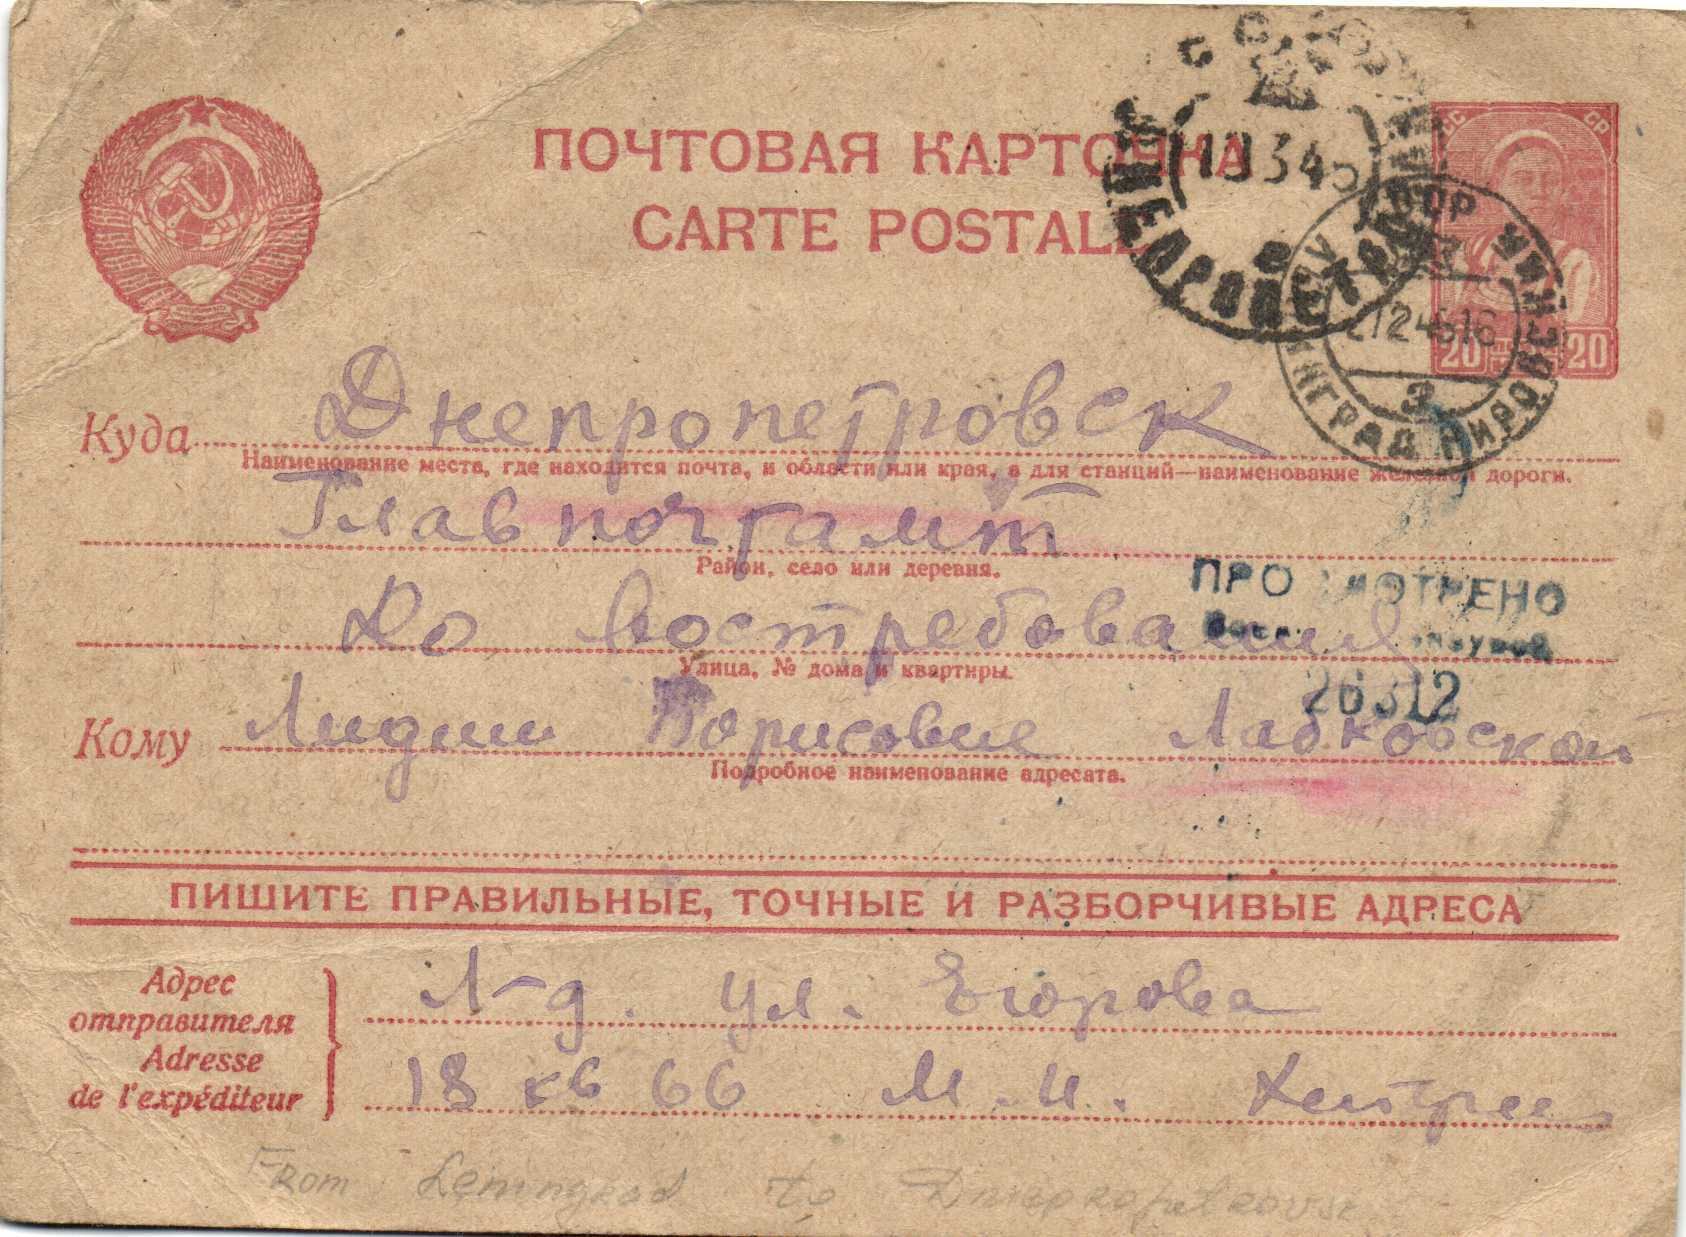 ПОЧТОВАЯ КАРТОЧКА
CARTE POSTALE
СС СР
20 20
3
Куда Днепропетровск
Наименование места, где находится почта, и области или края, а для станций—наименование железной дороги.
Главпочтамт
Район, село или деревня.
До востребования
Улица, № дома и квартиры.
ПРОСМОТРЕНО
26312
Кому Лидии Борисовне Лабковской
Подробное наименование адресата.
ПИШИТЕ ПРАВИЛЬНЫЕ, ТОЧНЫЕ И РАЗБОРЧИВЫЕ АДРЕСА
Адрес
отправителя
Adresse
de l'expéditeur
Л-д. ул. Егорова
18 кв 66 М. И.
From Leningrad to Dnepropetrovsk